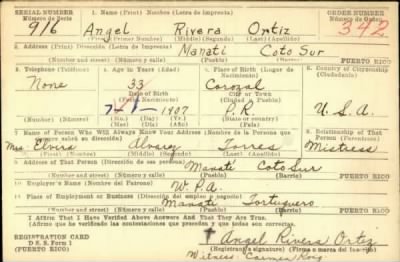 SERIAL NUMBER 1. Name (Print) Nombre (Letra de imprenta) ORDER NUMBER
Número de Serie Número de Orden
916 Angel Rivera Ortiz 342
(First) Primer Nombre) (Middle) (Segundo) (Last) (Apellido)
2. Address (Print) Dirección (Letra de Imprenta)
Manati Coto Sur
(Number and street) (Número y calle) (Town) (Pueblo) (Barrio) PUERTO RICO
3. Telephone (Teléfono) 4. Age in Years (Edad) 5. Place of Birth (Lugar de Nacimiento) 6. Country of Citizenship (Ciudadanía)
None 33 Corozal
Date of Birth (Fecha Nacimiento) City or Town (Ciudad o Pueblo)
7-1-1907 P.R. U.S.A.
(Mo.) (Day) (Yr.) State or country)
(Mes) (Día) (Año)
7. Name of Person Who Will Always Know Your Address (Nombre de la Persona que siempre sabrá su dirección) 8. Relationship of That Person (Parentesco)
Mrs. Elvira Alvarez Torres Mistress
(Mr., Mrs., Miss) (First) (Primer Nombre) (Middle) (Segundo) (Last) (Apellido)
9. Address of That Person (Dirección de esa persona)
Manati Coto Sur
(Number and street) (Número y calle) (Town) (Pueblo) (Barrio) PUERTO RICO
10. Employer's Name (Nombre del Patrono)
W.P.A.
11. Place of Employment or Business (Dirección del empleo o negocio)
Manati Tortuguero
(Number and street) (Número y calle) (Town) (Pueblo) (Barrio) PUERTO RICO
I Affirm That I Have Verified Above Answers And That They Are True.
Afirmo que he verificado las contestaciones que preceden y que todas son correctas.
REGISTRATION CARD
D. S. S. Form 1
(Puerto Rico)
Angel Rivera Ortiz
(Registrant's signature) (Firma o marca del inscrito)
Witness Carmen Roig